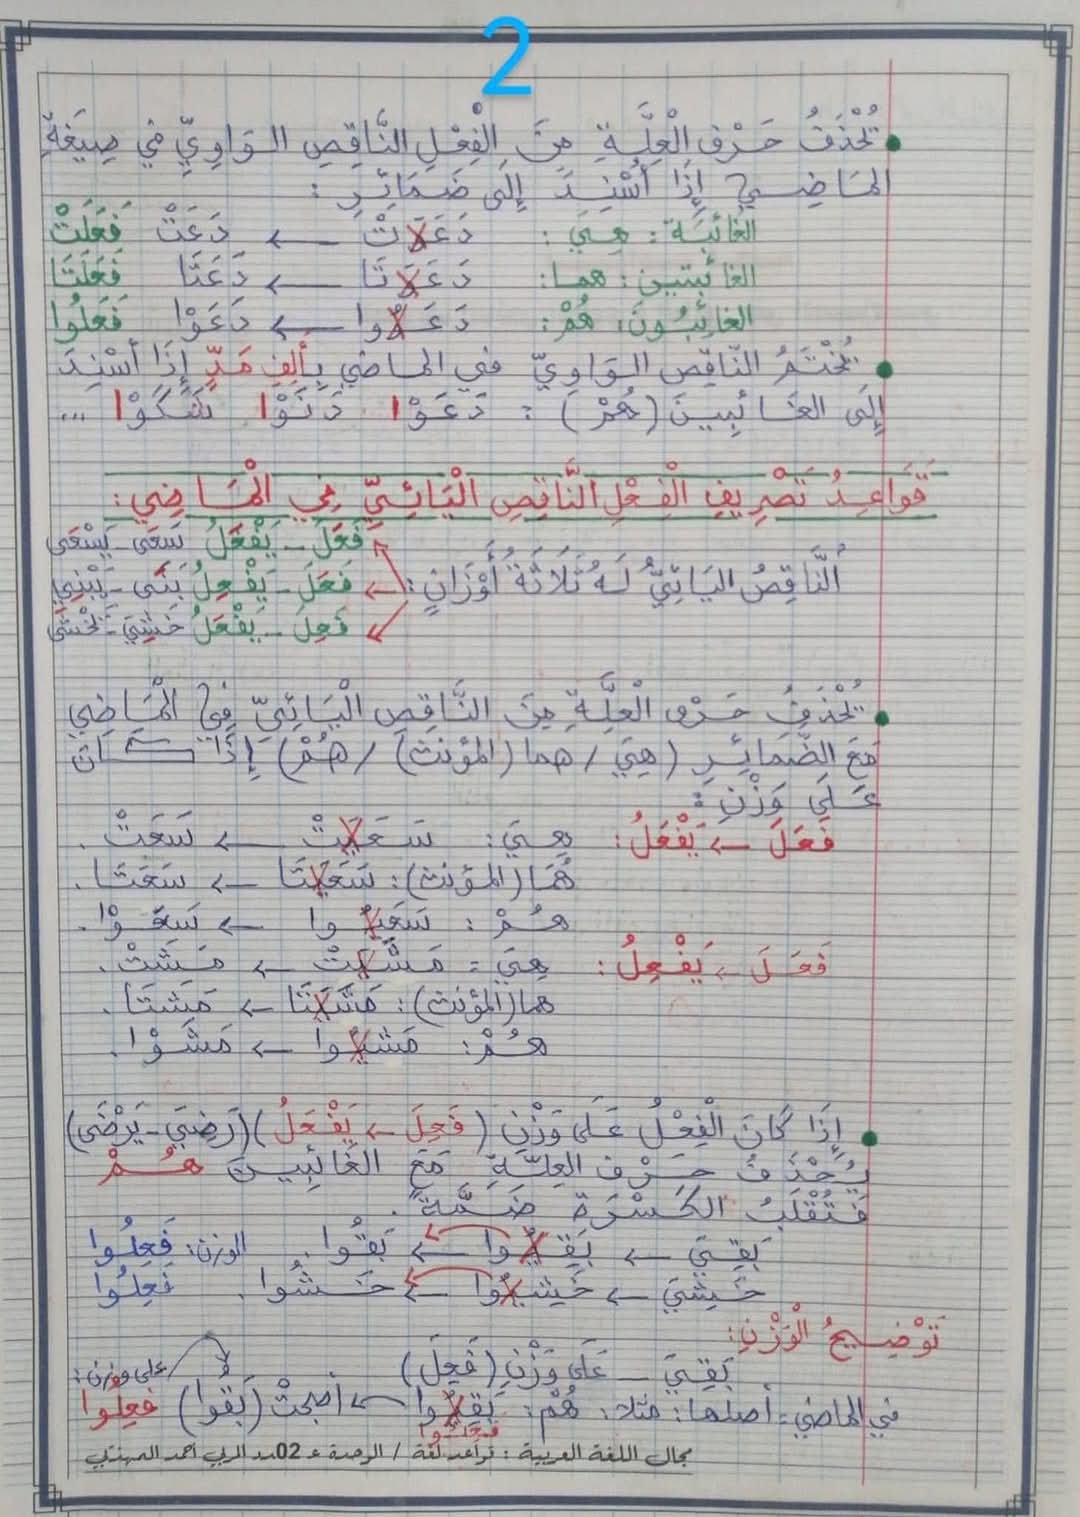 2
• تُحْذَفُ حَرْفُ الْعِلَّةِ مِنَ الْفِعْلِ النَّاقِصِ الوَاوِيِّ في صِيغَةِ
المَاضِي إِذَا أُسْنِدَ إِلَى ضَمَائِرِ :
الغَائِبَة : هِيَ : دَعَوَتْ ← دَعَتْ فَعَلَتْ
الغائبتين : هما : دَعَوَتَا ← دَعَتَا فَعَلَتَا
الغائِبُونَ : هُمْ : دَعَوُوا ← دَعَوْا فَعَلُوا
• يُخْتَمُ النّاقِص الوَاوِيّ في الماضي بِأَلِفِ مَدٍّ إِذَا أُسْنِدَ
إِلَى الغَائِبِينَ (هُمْ) : دَعَوْا دَنَوْا شَكَوْا ...
قَوَاعِدُ تَصْرِيفِ الْفِعْلِ النَّاقِصِ الْيَائِيِّ فِي الْمَاضِي :
فَعَلَ - يَفْعَلُ سَعَى - يَسْعَى
النَّاقِصُ اليَائِيُّ لَهُ ثَلَاثَةُ أَوْزَانٍ : فَعَلَ - يَفْعِلُ بَنَى - يَبْنِي
فَعِلَ - يَفْعَلُ خَشِيَ - يَخْشَى
• يُحْذَفُ حَرْف الْعِلَّةِ مِنَ النَّاقِصِ الْيَائِيِّ فِي الْمَاضِي
مَعَ الضَّمَائِرِ (هِيَ / هما (المؤنث) / هُمْ) إِذَا كَانَ
عَلَى وَزْنِ :
فَعَلَ ← يَفْعَلُ : هِيَ : سَعَيَتْ ← سَعَتْ .
هُمَا (المؤنث) : سَعَيَتَا ← سَعَتَا .
هُمْ : سَعَيُوا ← سَعَوْا .
فَعَلَ ← يَفْعِلُ : هِيَ = مَشَيَتْ ← مَشَتْ .
هما (المؤنث) : مَشَيَتَا ← مَشَتَا .
هُمْ : مَشَيُوا ← مَشَوْا .
• إِذَا كَانَ الْفِعْلُ عَلَى وَزْنِ (فَعِلَ ← يَفْعَلُ) (رَضِيَ - يَرْضَى)
يُحْذَفُ حَرْف العِلَّةِ مَعَ الغَائِبِينَ هُمْ
فَتُقْلَبُ الكَسْرَة ضَمَّة .
بَقِيَ ← بَقِيُوا ← بَقُوا . الوزن : فَعِلُوا
خَشِيَ ← خَشِيُوا ← خَشُوا . فَعِلُوا
تَوْضِيحُ الْوَزْنِ :
بَقِيَ - عَلَى وَزْنِ (فَعِلَ) على وزن :
في الماضي = أصلها : مثلا : هُمْ : بَقِيُوا ← أصبحتْ (بَقُوا) فَعِلُوا
فَعِلُوا
مجال اللغة العربية : قواعد لغة / الوحدة ع 02دد المربي أحمد المهذبي